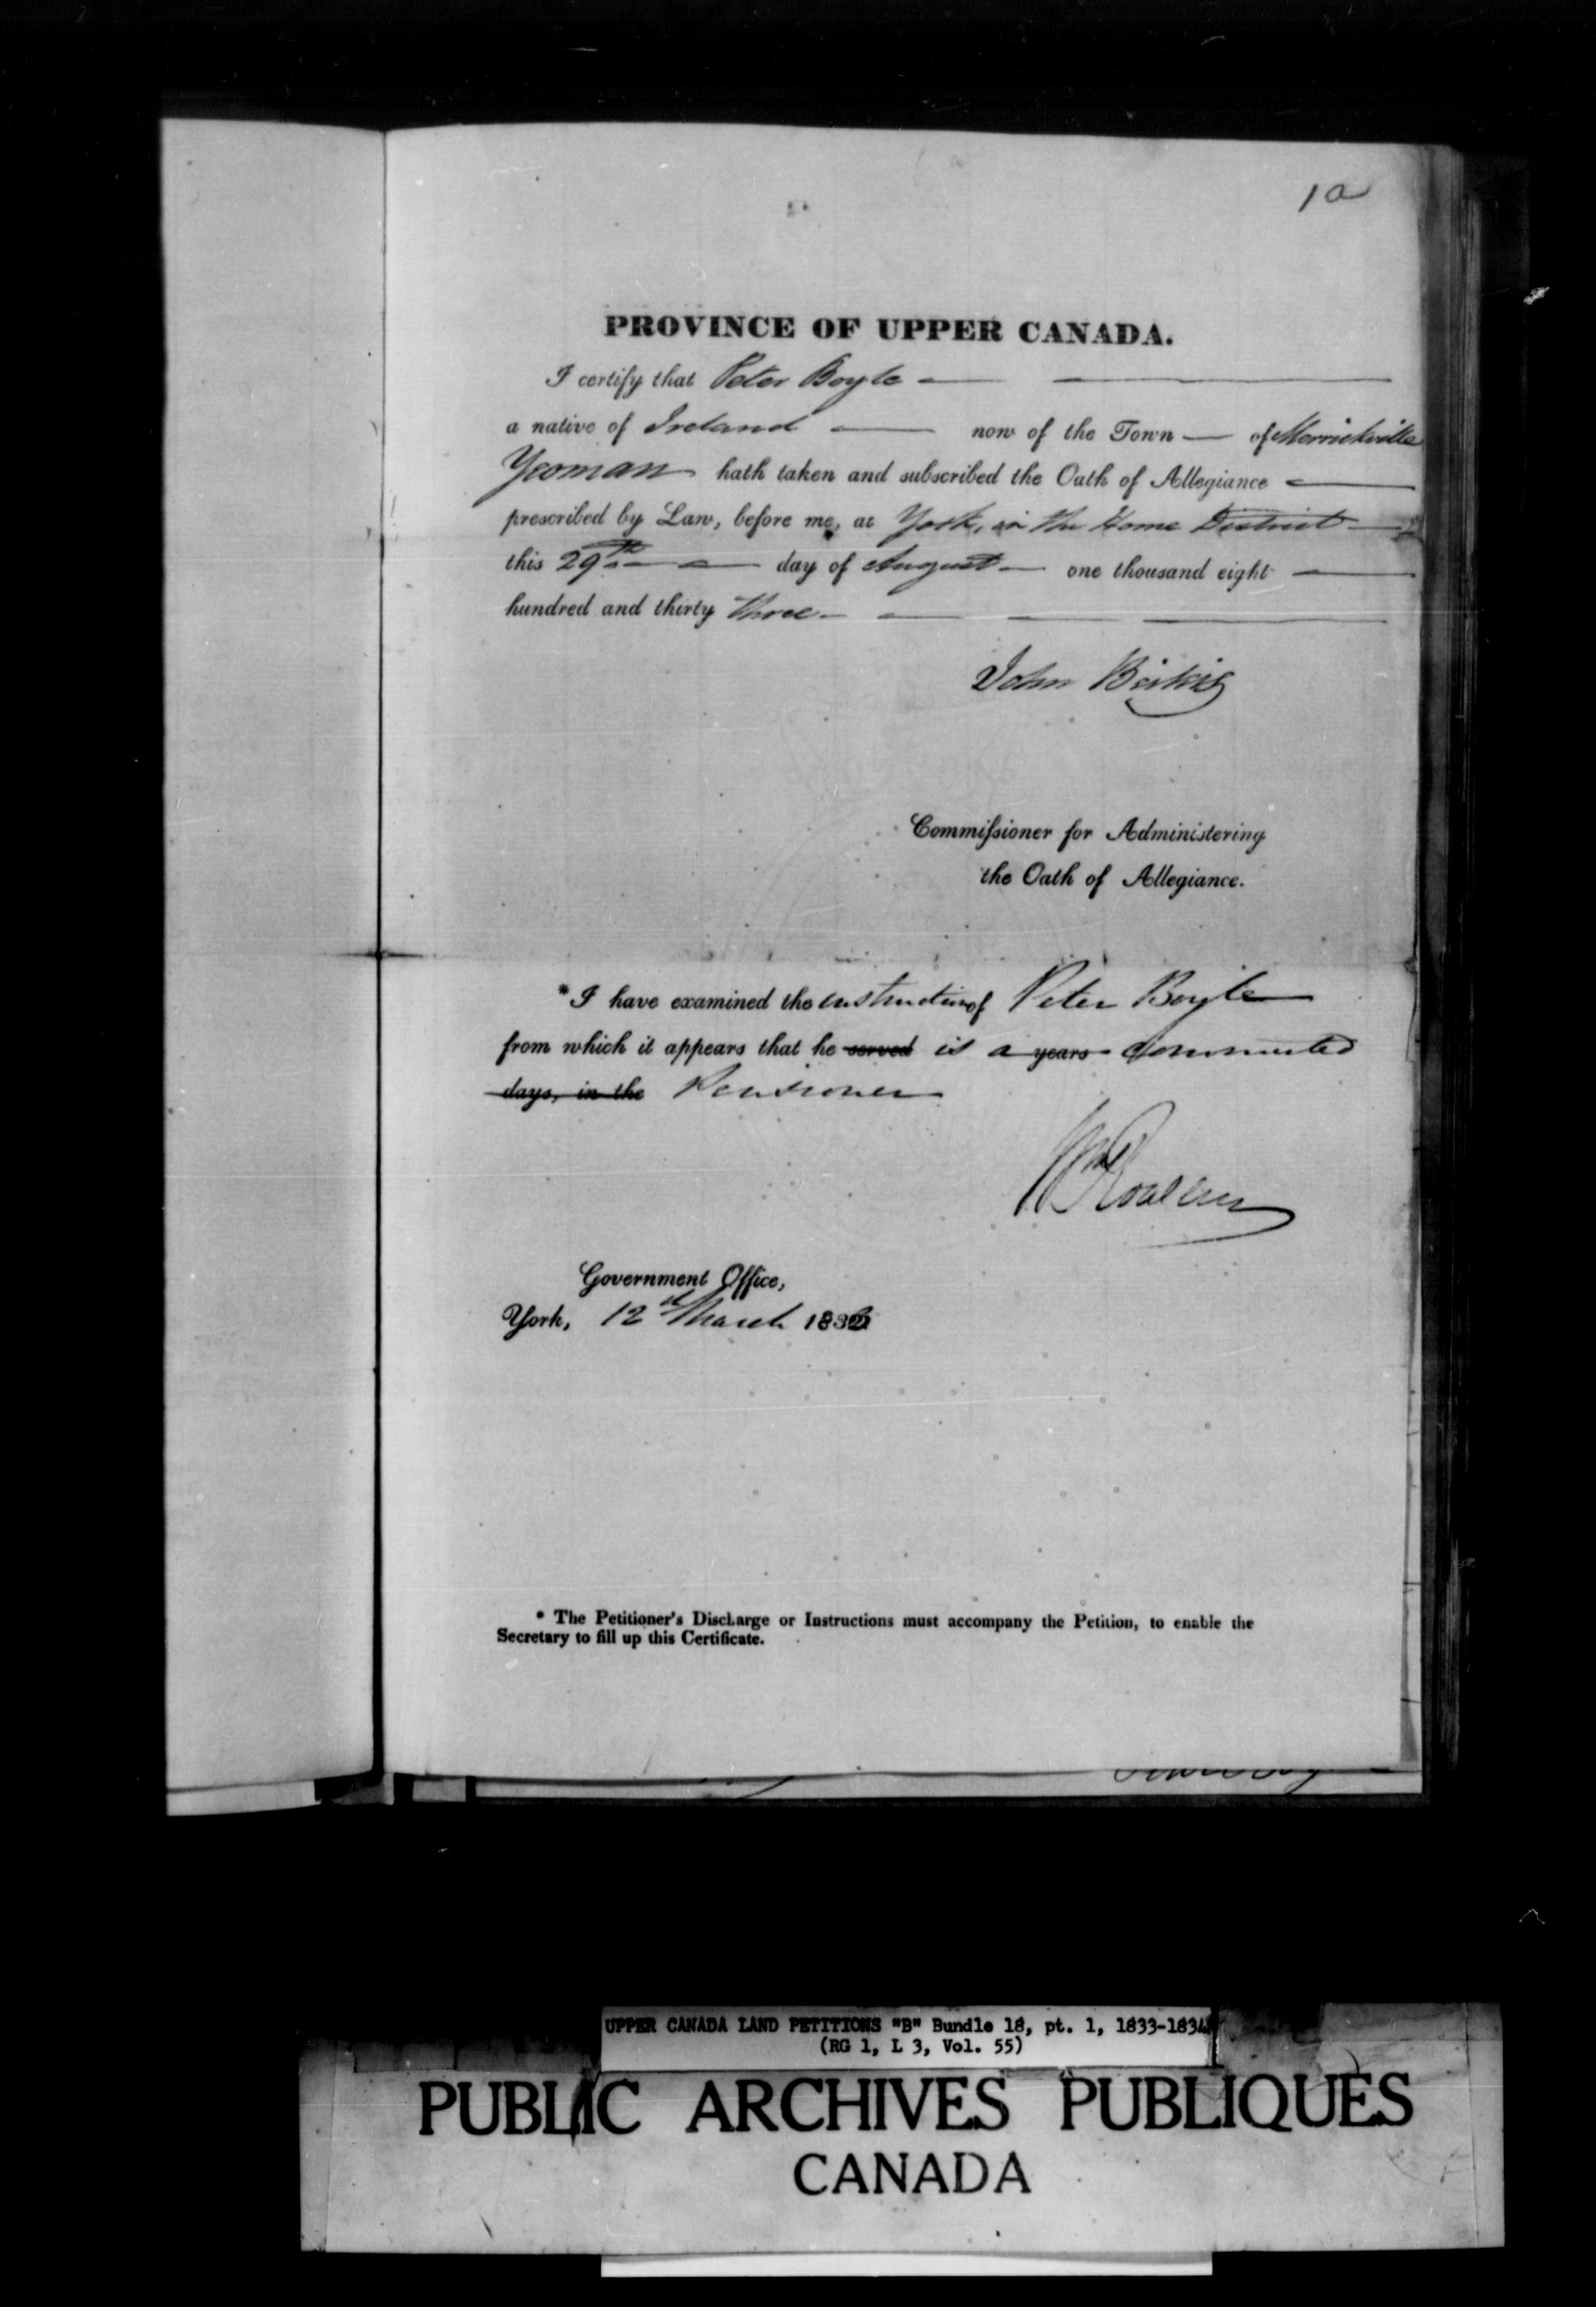 1a
PROVINCE OF UPPER CANADA.
I certify that Peter Boyle
a native of Ireland now of the Town of Merrickville
Yeoman hath taken and subscribed the Oath of Allegiance
prescribed by Law, before me, at York, in the Home District
this 29th day of August one thousand eight
hundred and thirty three
John Beikie
Commissioner for Administering
the Oath of Allegiance.
* I have examined the instruction of Peter Boyle
from which it appears that he served is a years commuted
days, in the Pensioner
Wm Rowan
Government Office,
York, 12th March 183
* The Petitioner's Discharge or Instructions must accompany the Petition, to enable the
Secretary to fill up this Certificate.
UPPER CANADA LAND PETITIONS "B" Bundle 18, pt. 1, 1833-1834
(RG 1, L 3, Vol. 55)
PUBLIC ARCHIVES PUBLIQUES
CANADA